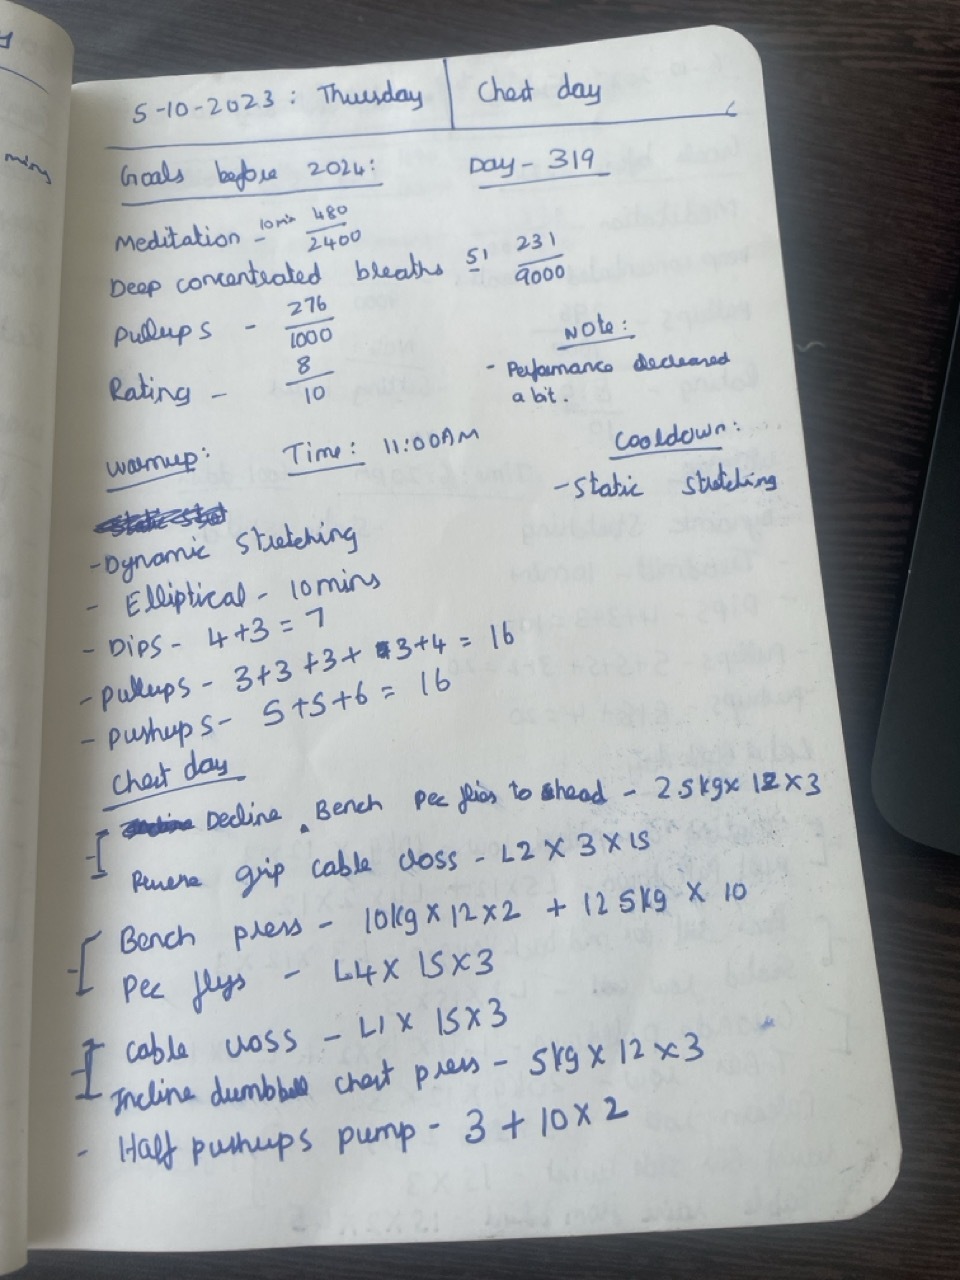 5-10-2023 : Thursday | Chest day
Goals before 2024:
Day - 319
Meditation - 10 min 480/2400
Deep concentrated breaths 51 231/9000
Pullups - 276/1000
Rating - 8/10
Note:
- Performance decreased
a bit.
Warmup:
Time: 11:00AM
Cooldown:
- Static stretching
- Dynamic stretching
- Elliptical - 10 mins
- Dips - 4+3 = 7
- Pullups - 3+3+3+3+4 = 16
- Pushups - 5+5+6 = 16
Chest day
Decline Bench Pec flies to head - 2.5kg x 12 x 3
Reverse grip cable cross - L2 x 3 x 15
Bench press - 10kg x 12 x 2 + 12.5kg x 10
Pec flys - L4 x 15 x 3
Cable cross - L1 x 15 x 3
Incline dumbbell chest press - 5kg x 12 x 3
- Half pushups pump - 3 + 10 x 2